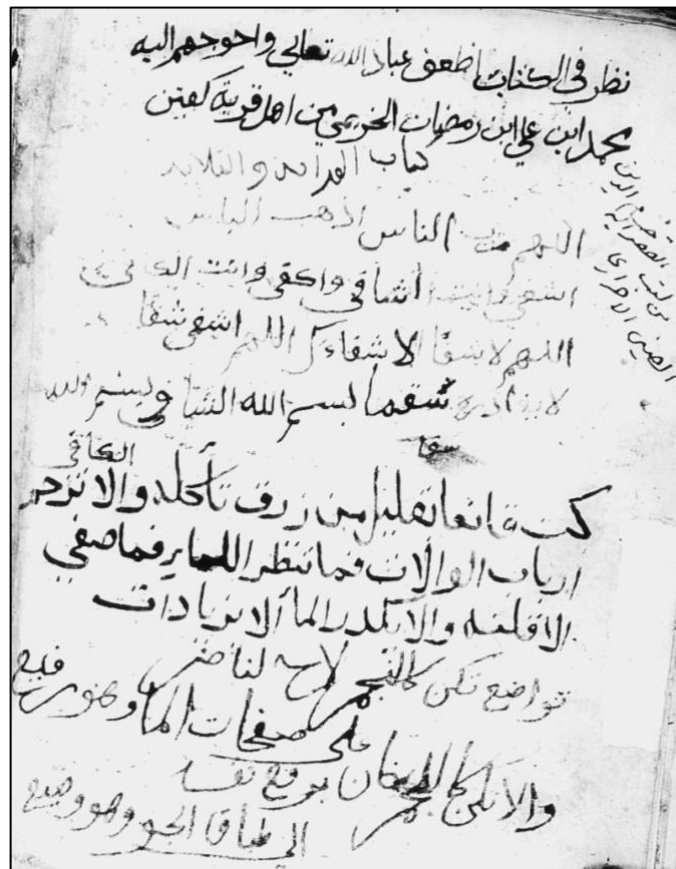 نظر في الكتاب اظعف عباد الله تعالي واحوجهم اليه
محمد ابن علي ابن رمضان من اهل قرية كفتين
كتاب الفرائد والقلائد
اللهم رب الناس اذهب الباس
اشفي وانت الشافي واكفي وانت الكافي
اللهم لا شفا الا شفاءك اللهم اشفي شفا
لا يغادره شقما بسم الله الشافي وبسم الله
سقما
الكافي
كن قانعا بقليل من زرق تأكله والا تزحم
ارباب الوالات فما تنظر الماير فما صفي
الا قلته والا تكدر الما ألا بزيادات
تواضع تكن كالنجم لاح لناضر
على صفحات الما وهو رفيع
والا تكن كالدخان يرفع نفسه
الى طباق الجو وهو وضيع
من كتب